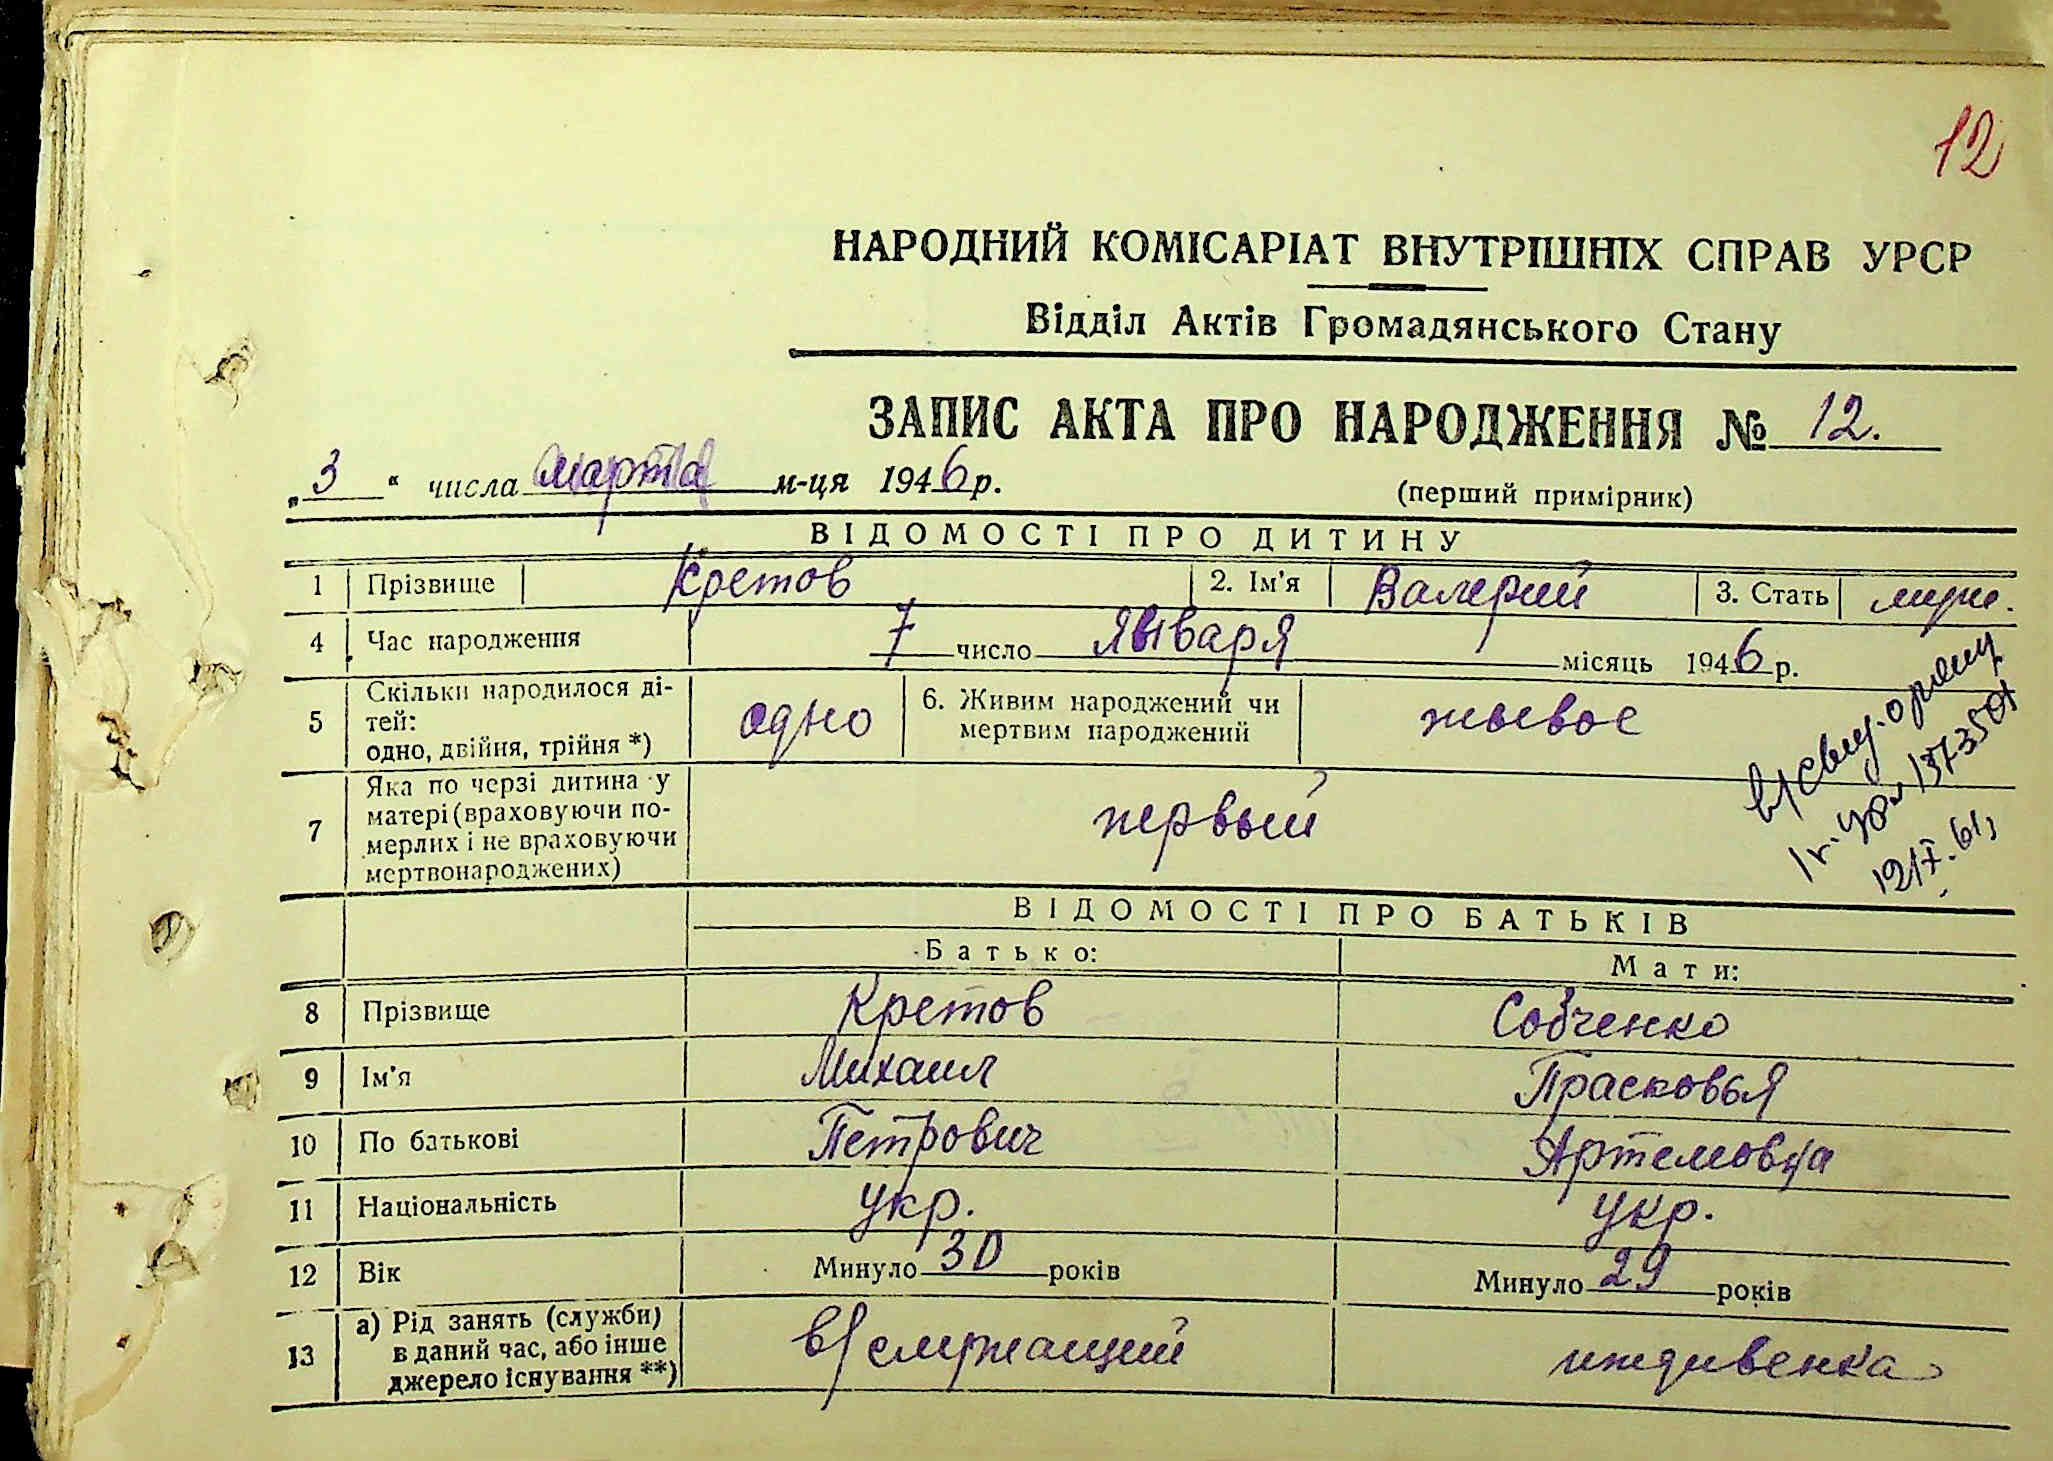 12
НАРОДНИЙ КОМІСАРІАТ ВНУТРІШНІХ СПРАВ УРСР
Відділ Актів Громадянського Стану
ЗАПИС АКТА ПРО НАРОДЖЕННЯ № 12.
„3“ числа марта м-ця 1946 р.
(перший примірник)
ВІДОМОСТІ ПРО ДИТИНУ
1 Прізвище Кретов 2. Ім'я Валерий 3. Стать муж.
4 Час народження 7 число января місяць 1946 р.
5 Скільки народилося ді-
тей:
одно, двійня, трійня *) одно
6. Живим народжений чи
мертвим народжений живое
7 Яка по черзі дитина у
матері (враховуючи по-
мерлих і не враховуючи
мертвонароджених) первый
в/свид. о рожд.
137350
12/X-61,
ВІДОМОСТІ ПРО БАТЬКІВ
Батько: Мати:
8 Прізвище Кретов Собченко
9 Ім'я Михаил Прасковья
10 По батькові Петрович Артемовна
11 Національність укр. укр.
12 Вік Минуло 30 років Минуло 29 років
13 а) Рід занять (служби)
в даний час, або інше
джерело існування **) в/служащий иждивенка